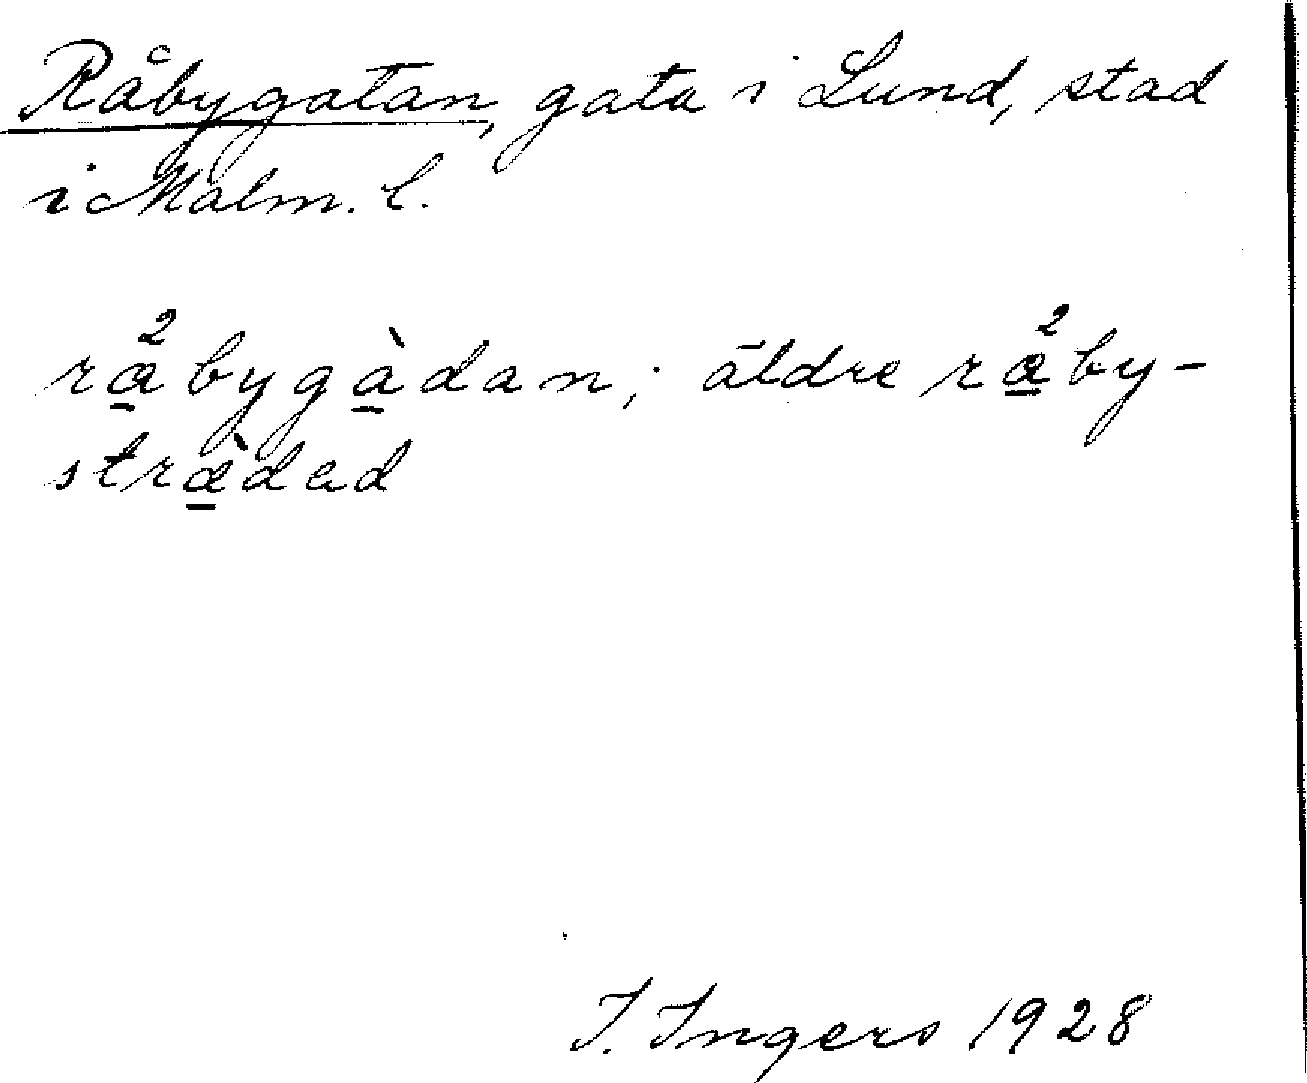 Råbygatan, gata i Lund, stad
i Malm. l.
rå²bygàdan; äldre rå²by-
stræ̀ded
I. Ingers 1928